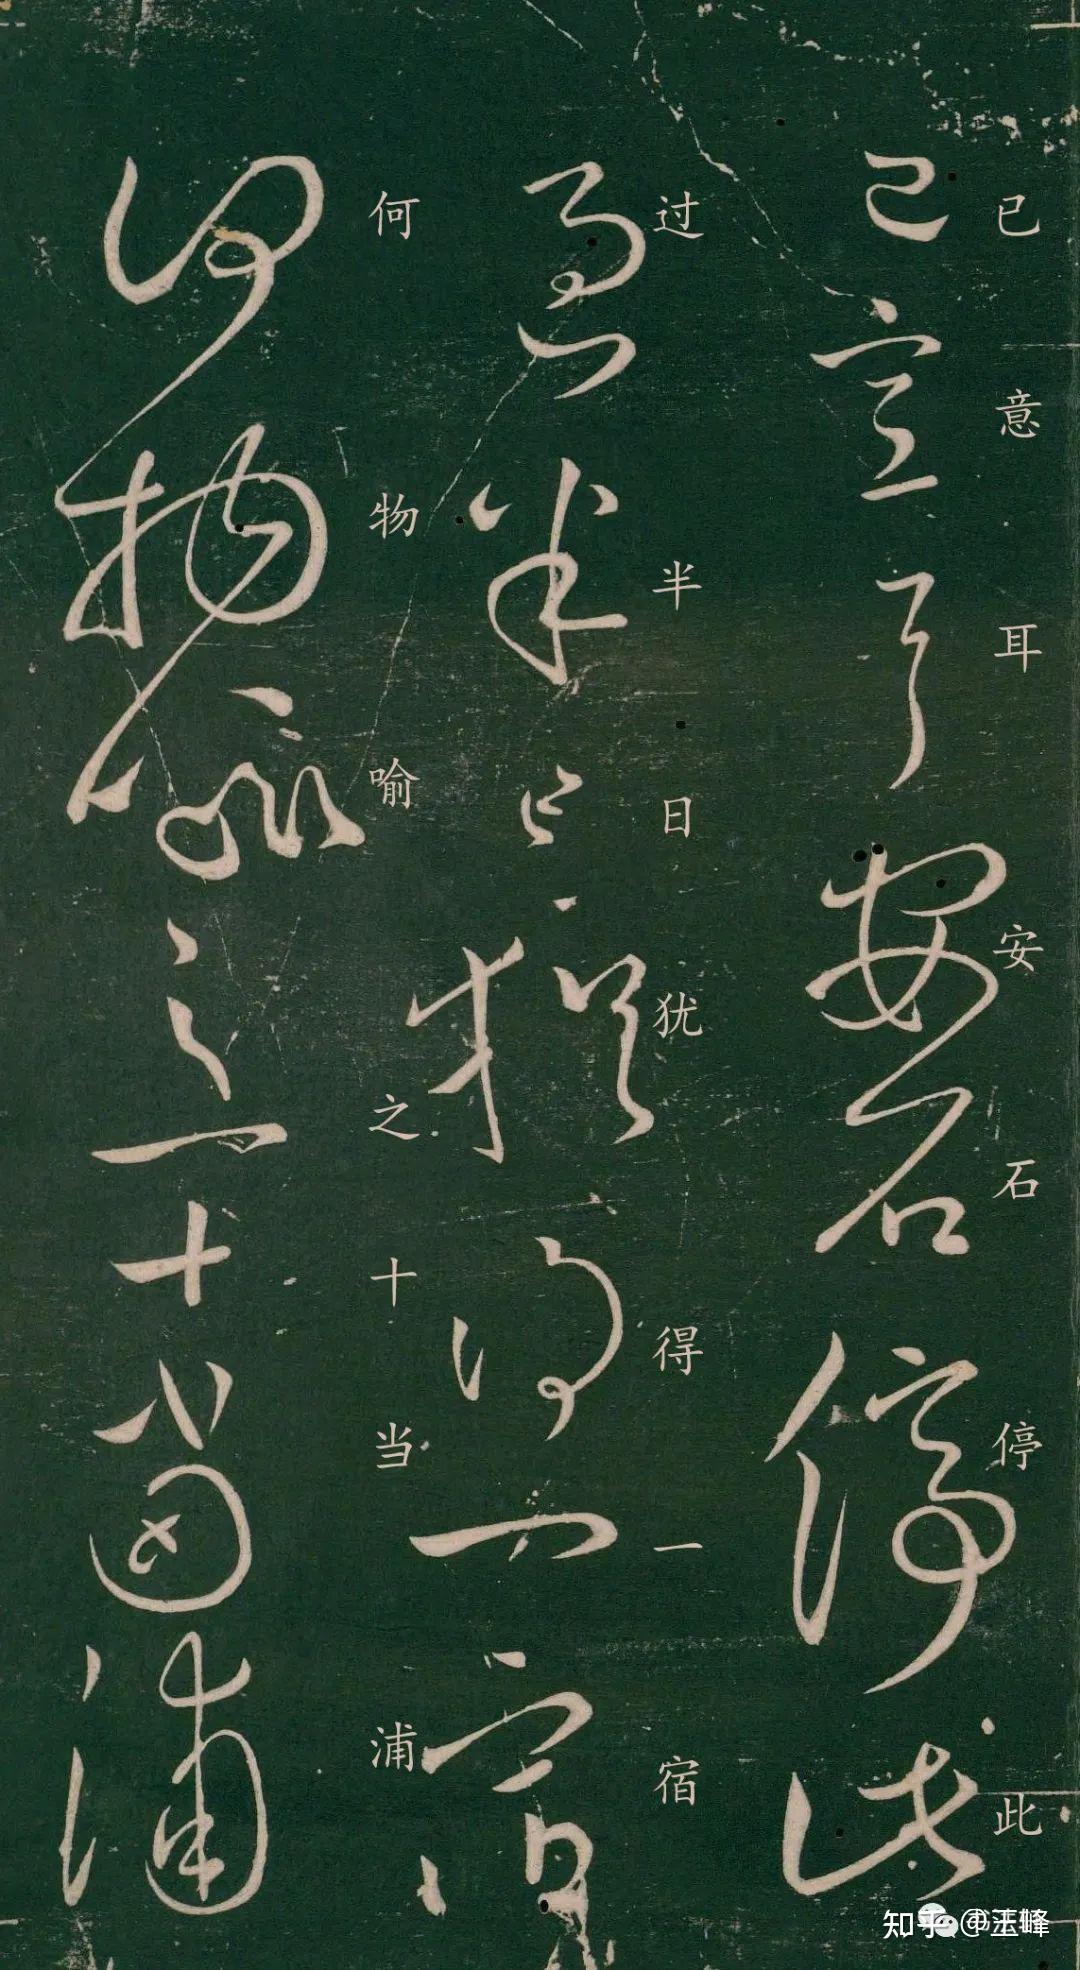 已意耳安石停此
过半日犹得一宿
何物喻之十当浦
知乎 @王峰